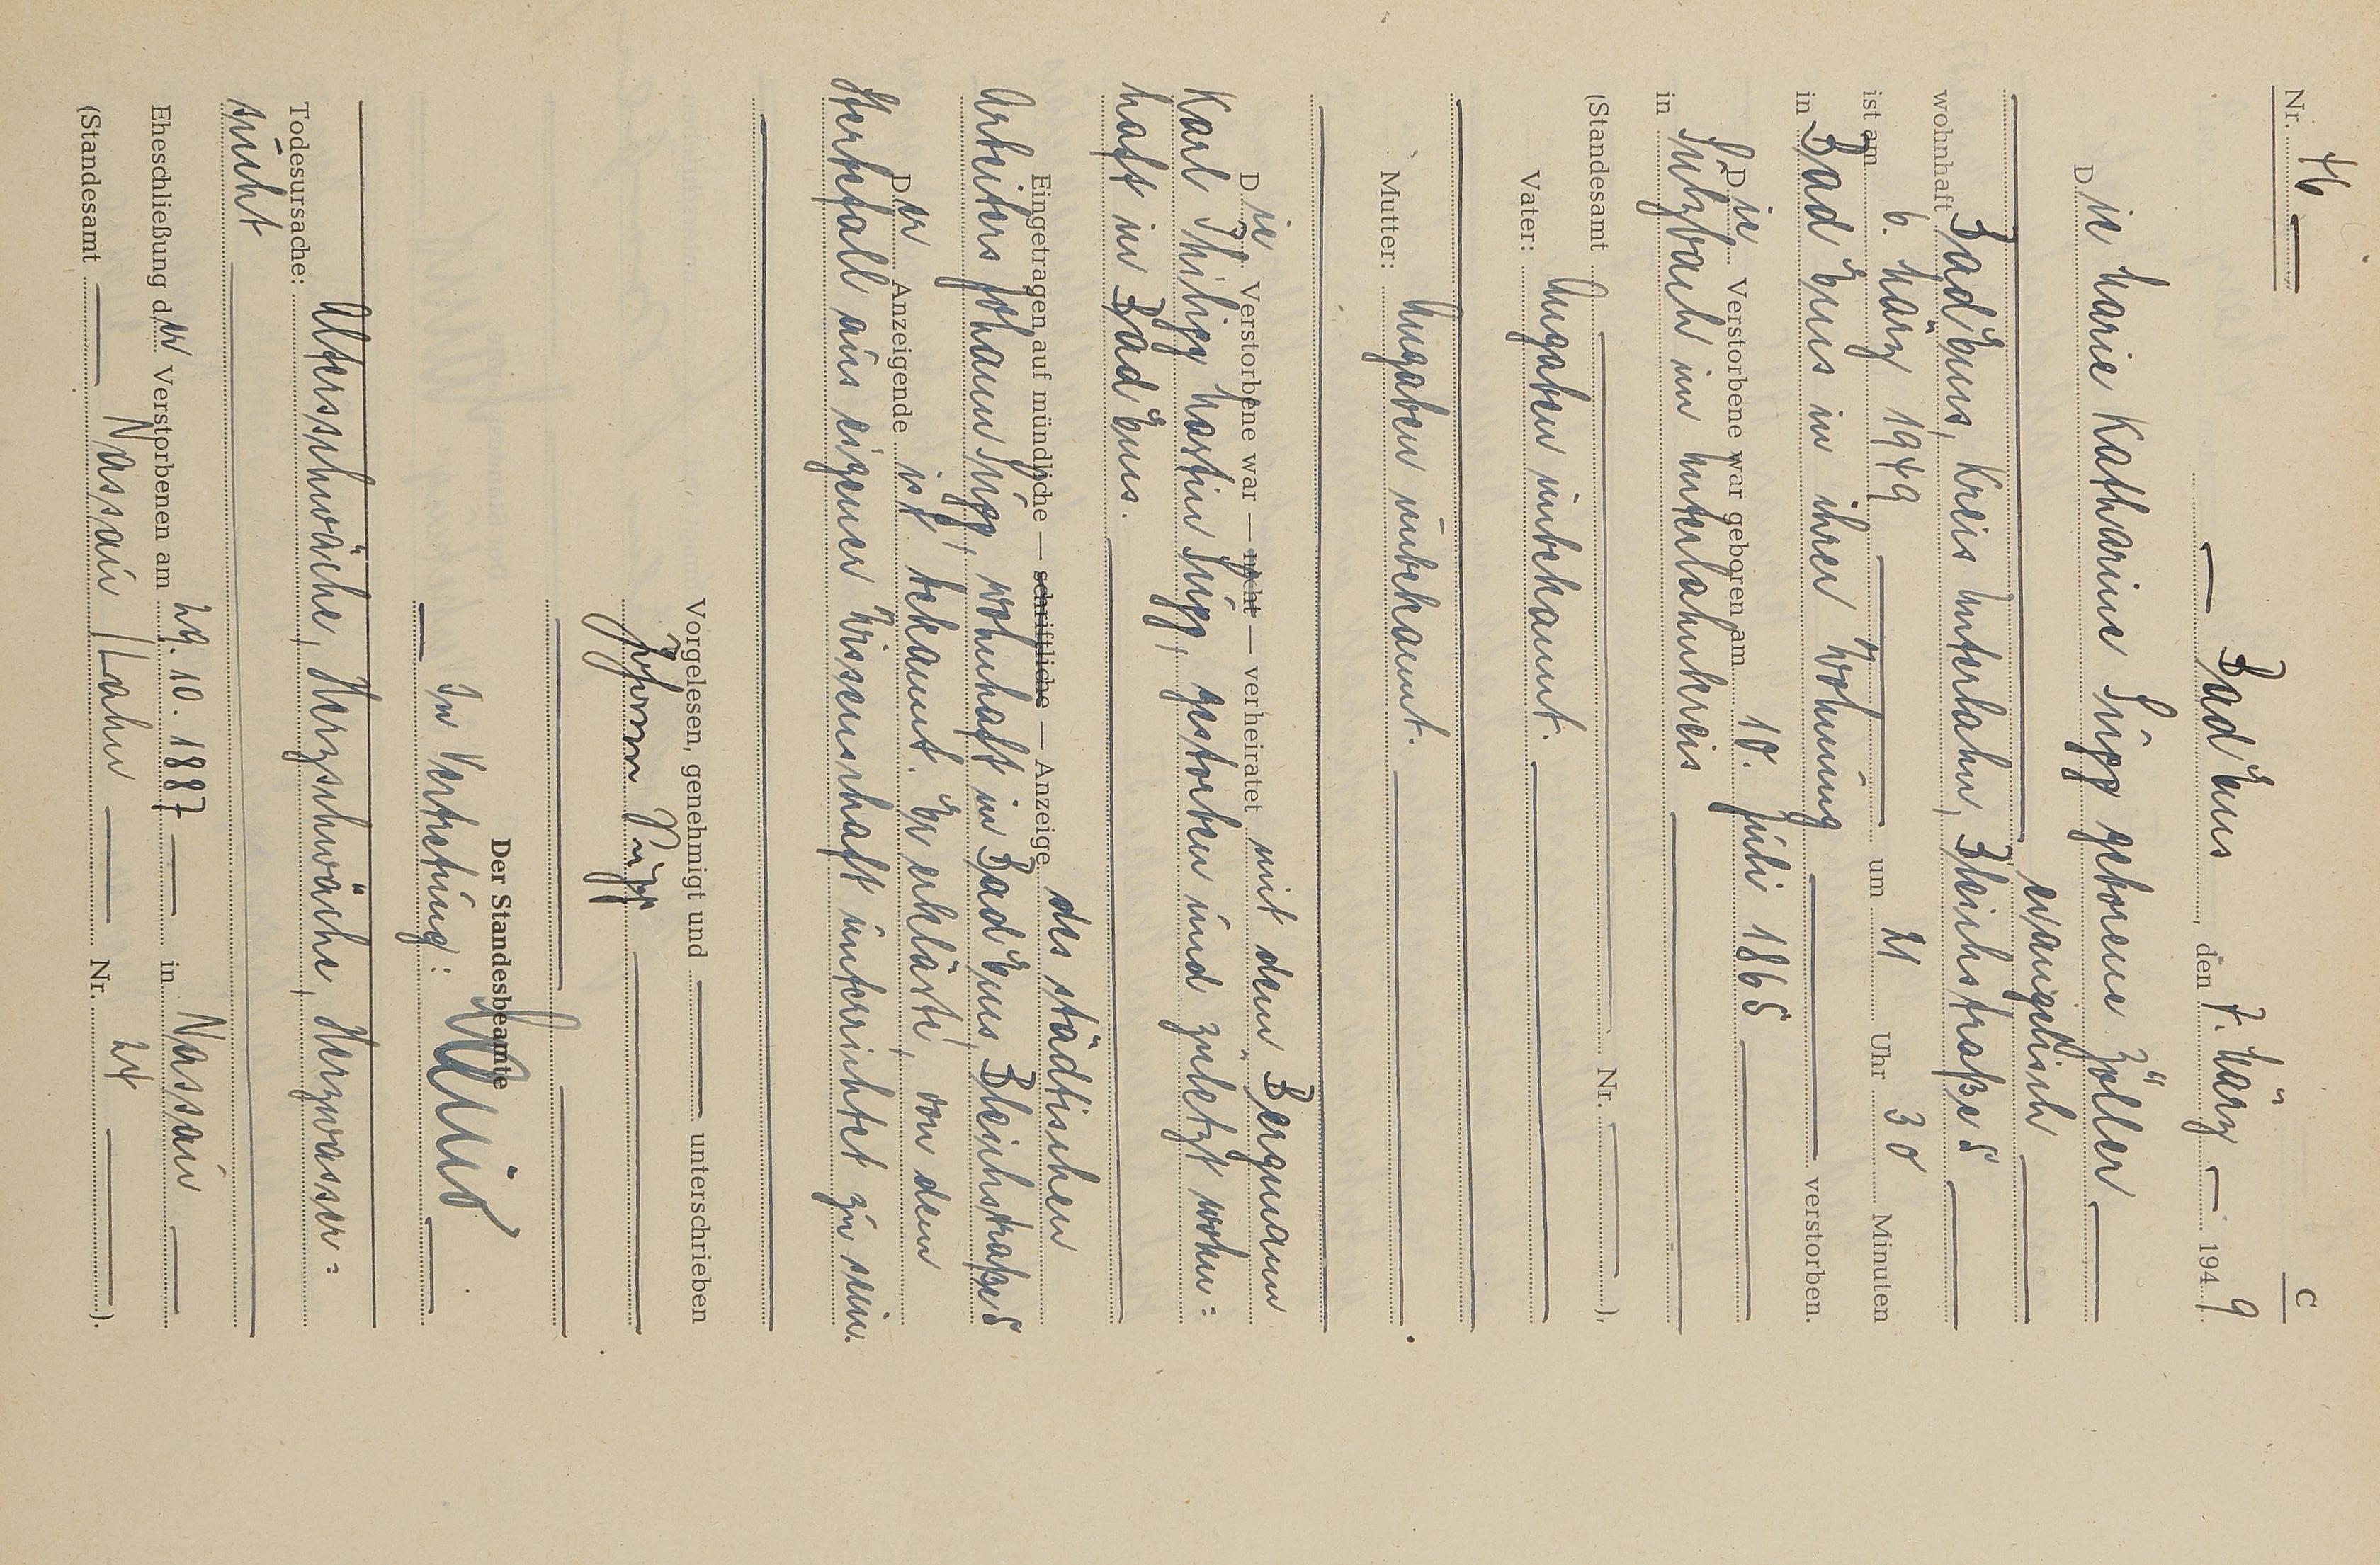 Nr. 46
C
Bad Ems, den 7. März 1949
Die Marie Katharine Supp geborene Zöller
evangelisch
wohnhaft Bad Ems, Kreis Unterlahn, Bleichstraße 5
ist am 6. März 1949 um 21 Uhr 30 Minuten
in Bad Ems in ihrer Wohnung verstorben.
Die Verstorbene war geboren am 10. Juli 1865
in Sulzbach im Unterlahnkreis
(Standesamt Nr. ).
Vater: Angaben unbekannt.
Mutter: Angaben unbekannt.
Die Verstorbene war — nicht — verheiratet mit dem Bergmann
Karl Philipp Martin Supp, gestorben und zuletzt wohn=
haft in Bad Ems.
Eingetragen auf mündliche — schriftliche — Anzeige des städtischen
Arbeiters Johann Supp, wohnhaft in Bad Ems, Bleichstraße 5
Der Anzeigende ist bekannt. Er erklärte, von dem
Sterbefall aus eigener Wissenschaft unterrichtet zu sein.
Vorgelesen, genehmigt und unterschrieben
Johann Supp
Der Standesbeamte
In Vertretung:
Todesursache: Altersschwäche, Herzschwäche, Herzwasser=
sucht
Eheschließung der Verstorbenen am 29. 10. 1887 in Nassau
(Standesamt Nassau/Lahn Nr. 24 ).